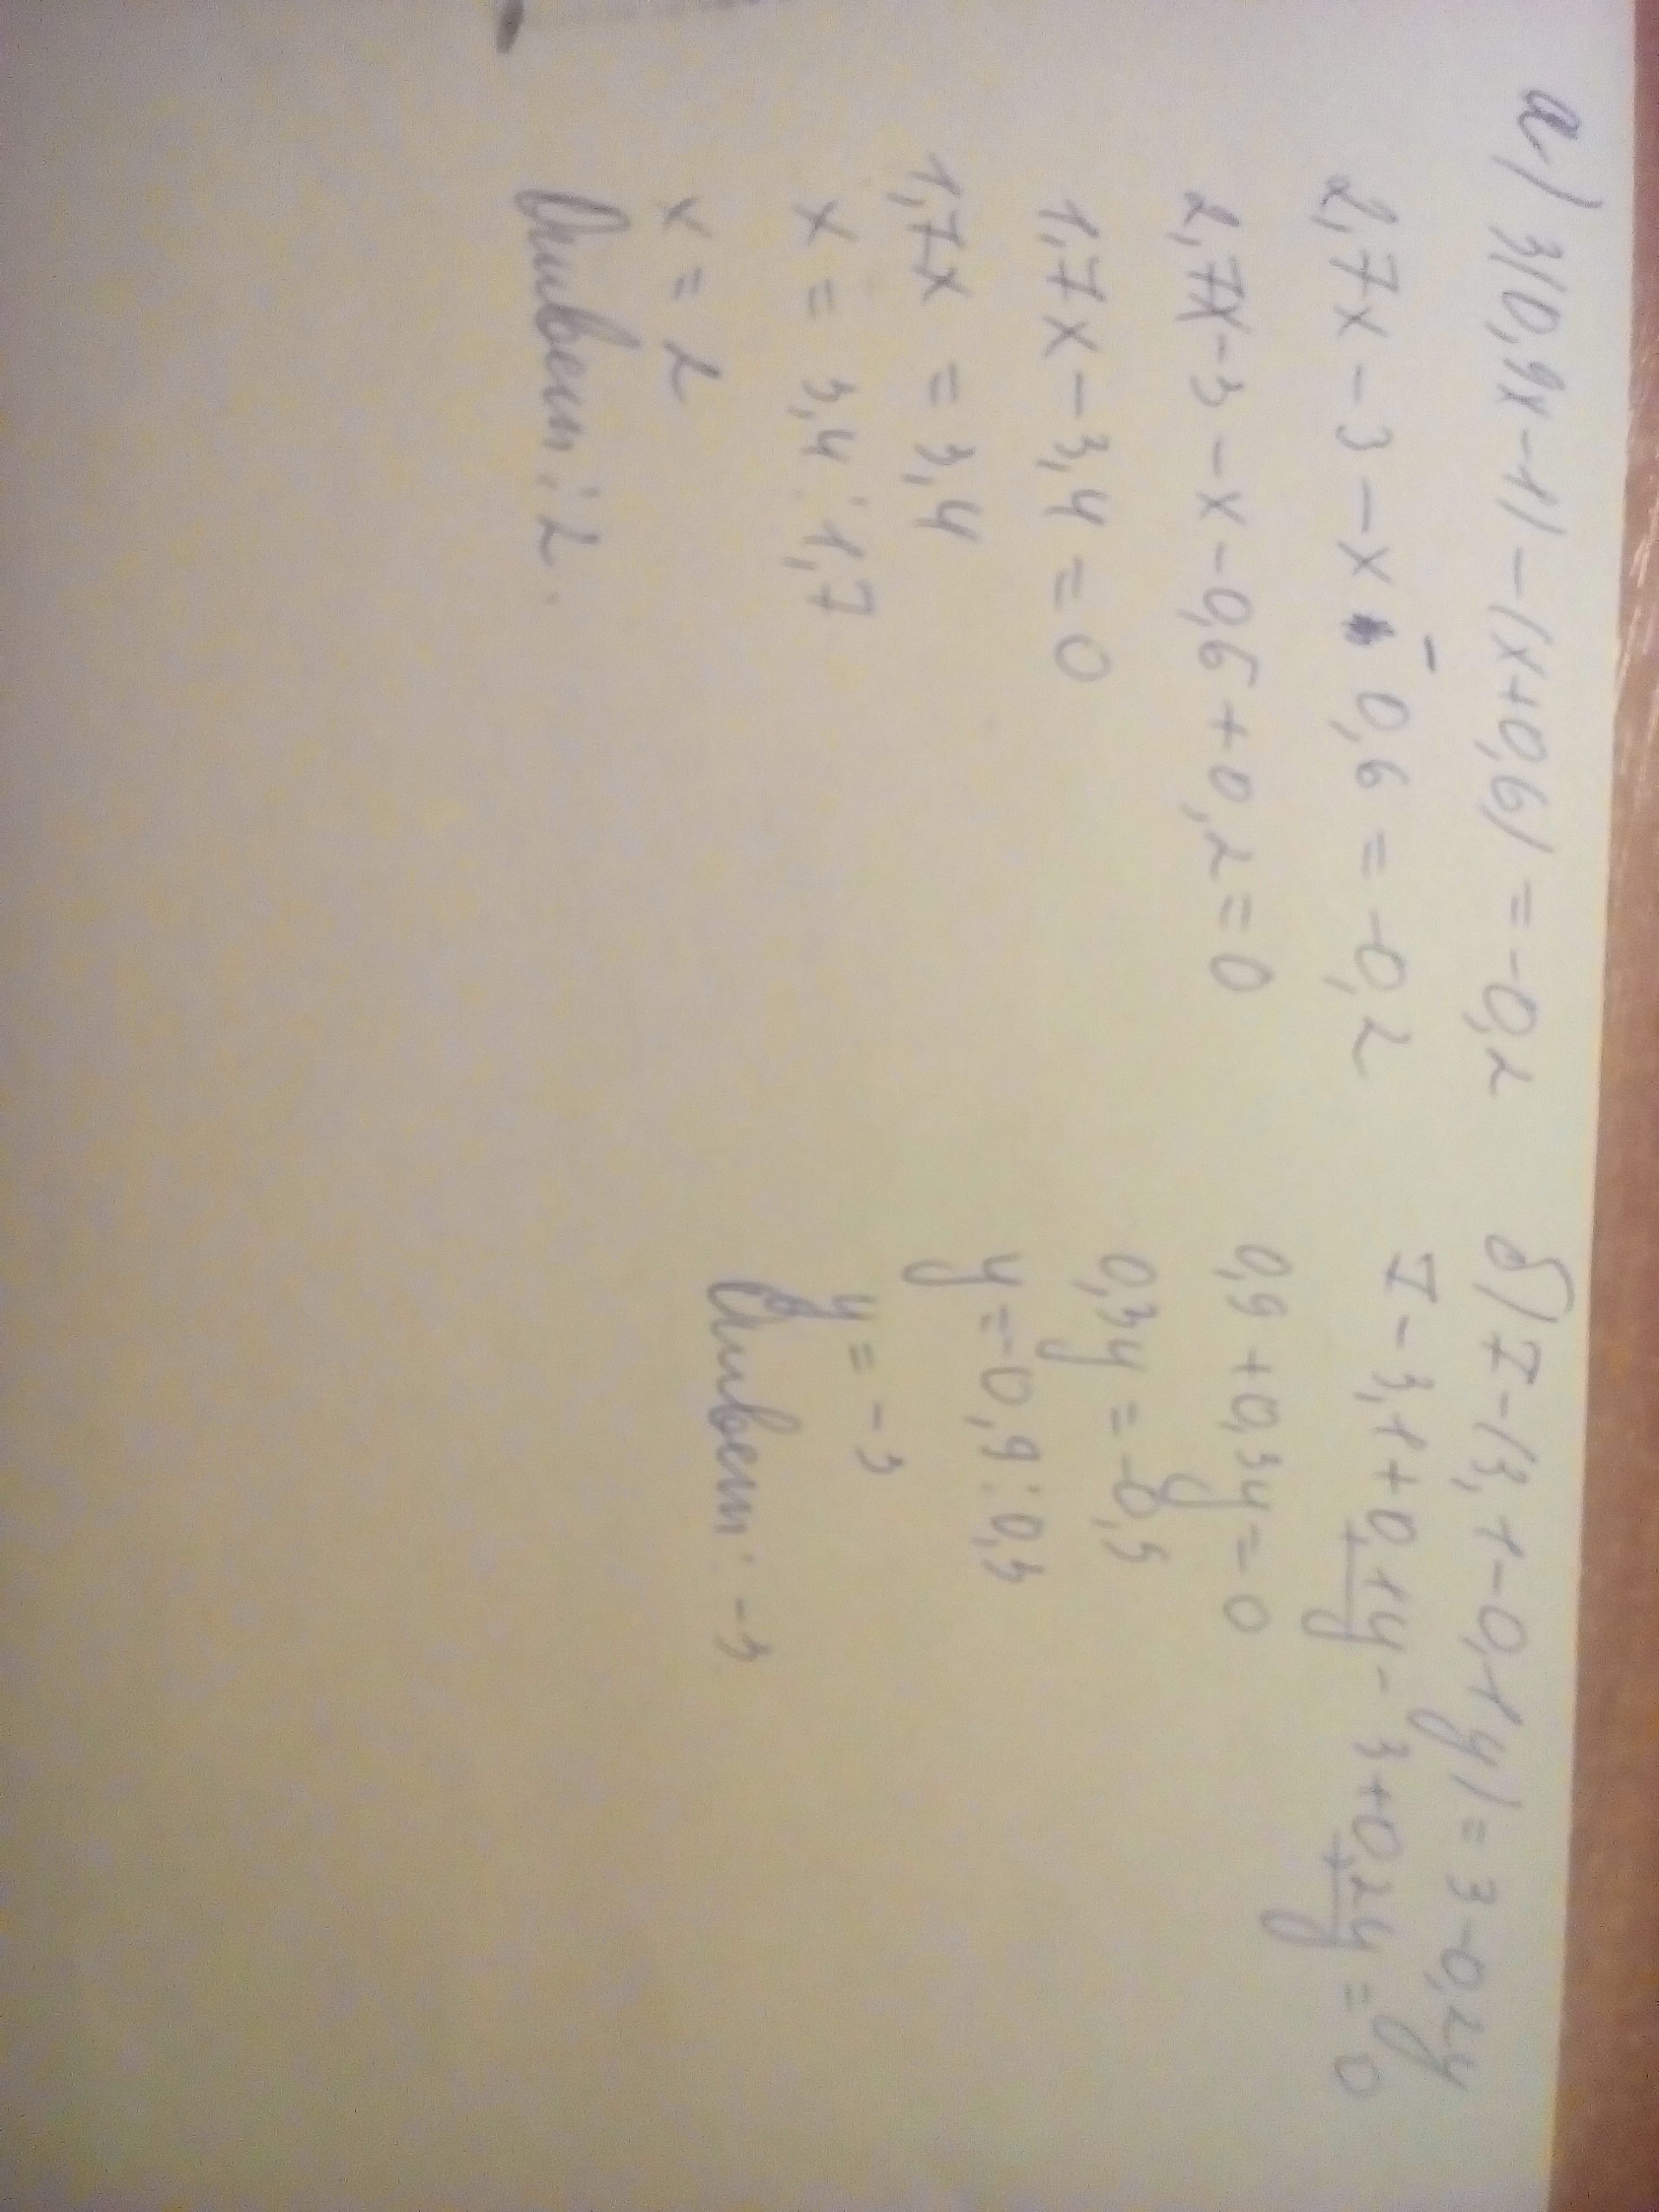 а) 3(0,9х-1)-(х+0,6)=-0,2
2,7х-3-х-0,6=-0,2
2,7х-3-х-0,6+0,2=0
1,7х-3,4=0
1,7х=3,4
х=3,4:1,7
х=2
Ответ: 2.
б) 7-(3,1-0,1у)=3-0,2у
7-3,1+0,1у-3+0,2у=0
0,9+0,3у=0
0,3у=-0,9
у=-0,9:0,3
у=-3
Ответ: -3